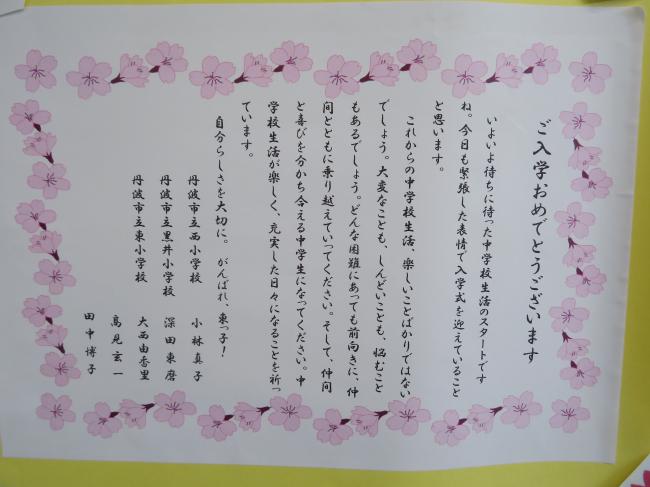 ご入学おめでとうございます
いよいよ待ちに待った中学校生活のスタートです
ね。今日も緊張した表情で入学式を迎えていること
と思います。
これからの中学校生活、楽しいことばかりではない
でしょう。大変なことも、しんどいことも、悩むこと
もあるでしょう。どんな困難にあっても前向きに、仲
間とともに乗り越えていってください。そして、仲間
と喜びを分かち合える中学生になってください。中
学校生活が楽しく、充実した日々になることを祈っ
ています。
自分らしさを大切に。がんばれ、東っ子！
丹波市立西小学校 小林真子
丹波市立黒井小学校 深田東磨
丹波市立東小学校 大西由香里
高見玄一
田中博子